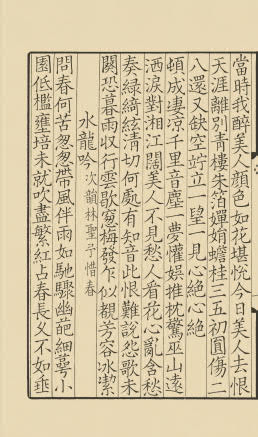 當時我醉美人顏色如花堪悅今日美人去恨
天涯離別青樓朱泊嬋娟蟾桂三五初圓傷二
八還又缺空竚立一望一見心絶心絶
頓成淒涼千里音塵一夢懽娛推枕驚巫山遠
洒淚對湘江闊美人不見愁人看花心亂含愁
奏綠綺絃清切何處有知音此恨難說怨歌未
闋恐暮雨收行雲歇窓梅發乍似覩芳容冰潔
水龍吟次韻林聖予惜春
問春何苦怱怱帶風伴雨如馳驟幽葩細萼小
園低檻壅培未就吹盡繁紅占春長乆不如垂